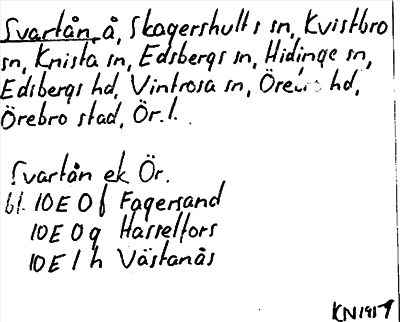 Svartån, å, Skagershults sn, Kvistbro
sn, Knista sn, Edsbergs sn, Hidinge sn,
Edsbergs hd, Vintrosa sn, Örebro hd,
Örebro stad, Ör. l.
Svartån ek Ör.
bl. 10E 0f Fagersand
10E 0g Hasselfors
10E 1h Västanås
KN1917